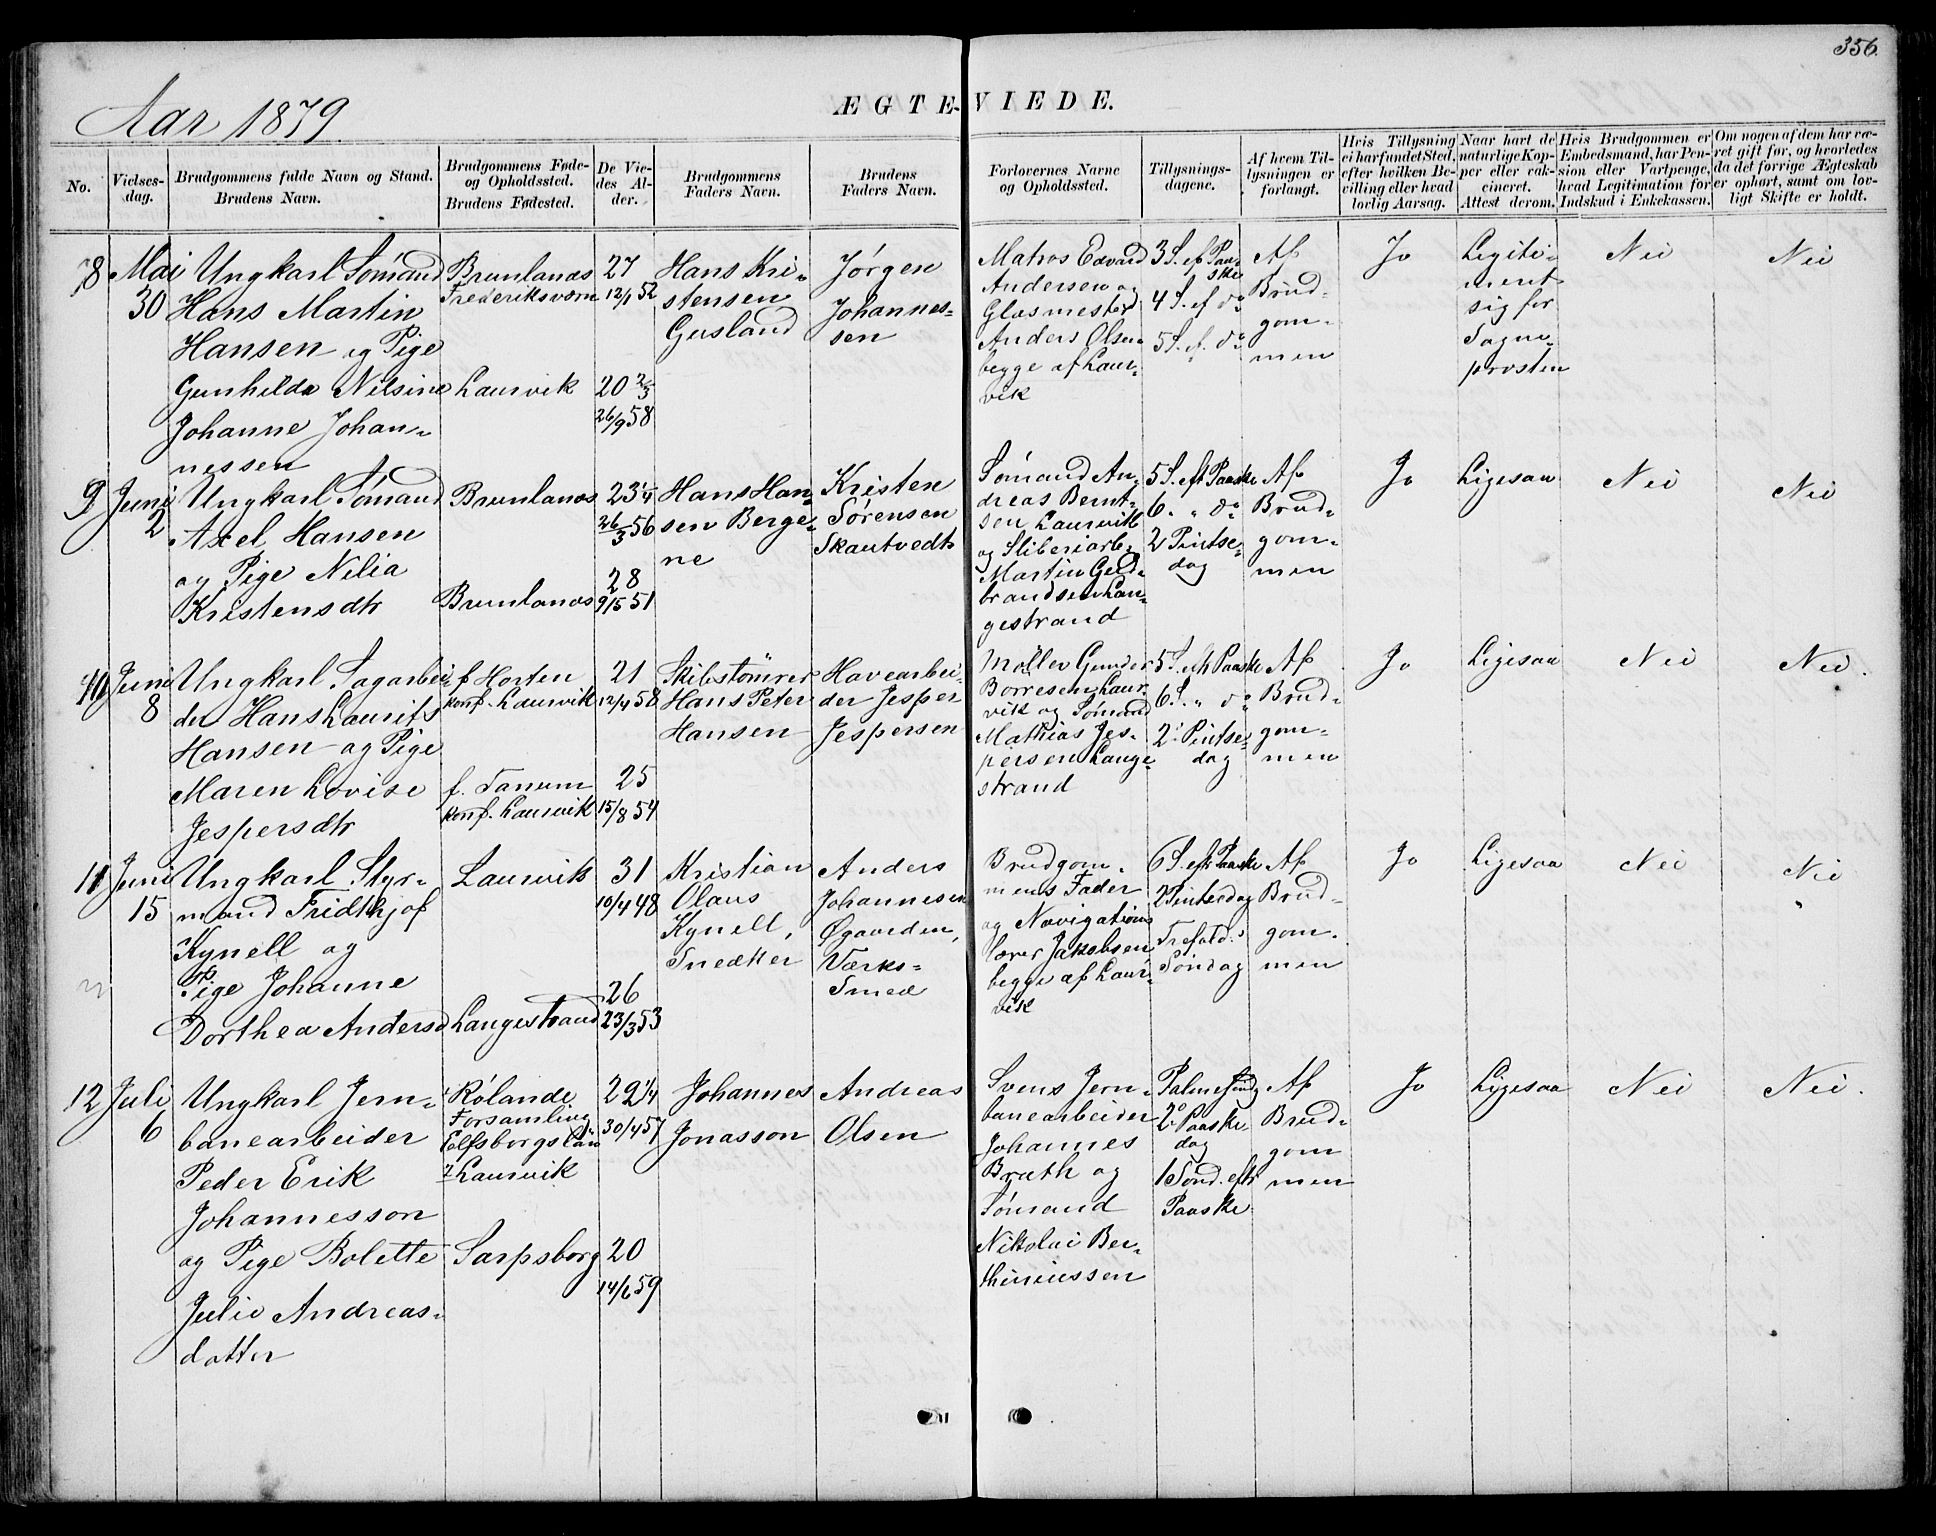 356.
Aar 1879.
ÆGTE-VIEDE.
No.
Vielses-
dag.
Brudgommens fulde Navn og Stand.
Brudens Navn.
Brudgommens Føde-
og Opholdssted.
Brudens Fødested.
De Vie-
des Al-
der.
Brudgommens
Faders Navn.
Brudens
Faders Navn.
Forlovernes Navne
og Opholdssted.
Tillysnings-
dagene.
Af hvem Til-
lysningen er
forlangt.
Hvis Tillysning
ei har fundet Sted,
efter hvilken Be-
villing eller hvad
lovlig Aarsag.
Naar havt de
naturlige Kop-
per eller vak-
cineret.
Attest derom.
Hvis Brudgommen er
Embedsmand, har Pen-
sion eller Vartpenge,
hvad Legitimation for
Indskud i Enkekassen.
Om nogen af dem har væ-
ret gift før, og hvorledes
da det forrige Ægteskab
er ophørt, samt om lov-
ligt Skifte er holdt.
8
Mai
30
Ungkarl Sømand
Hans Martin
Hansen og Pige
Gunhilda Nilsine
Johanne Johan-
nessen
Brunlanæs
Frederiksværn
Laurvik
27
12/1 52
20 2/3
26/9 58
Hans Kri-
stensen
Gusland
Jørgen
Johannes-
sen
Matros Edvard
Andersen og
Glasmester
Anders Olsen
begge af Laur-
vik
3 S. ef Paa-
ske
4 S. ef do
5 S. ef. do
Af
Brud-
gom-
men
Jo
Legiti-
meret
sig for
Sogne-
prosten
Nei
Nei
9
Juni
2
Ungkarl Sømand
Axel Hansen
og Pige Nilia
Kristensdtr
Brunlanæs
Brunlanæs
23 1/4
26/3 56
28
9/5 51
Hans Han-
sen Berge-
ne
Kristen
Sørensen
Skautvedt
Sømand An-
dreas Bernt-
sen Laurvik
og Sliberiarb.
Martin Guld-
brandsen Lan-
gestrand
5 S. eft Paaske
6. " do
2 Pintse-
dag
Af
Brud-
gom-
men
Jo
Ligesaa
Nei
Nei
10
Juni
8
Ungkarl Sagarbei-
der Hans Laurits
Hansen og Pige
Maren Lovise
Jespersdtr
f. Horten
konf. Laurvik
f. Tanum
konf. Laurvik
21
12/4 58
25
15/8 54
Skibstömrer
Hans Peter
Hansen
Havearbei-
der Jesper
Jespersen
Møller Gunder
Borresen Laur-
vik og Sømand
Mathias Jes-
persen Lange-
strand
5 S. eft Paaske
6 S. " do
2 Pintse-
dag
Af
Brud-
gom-
men
Jo
Ligesaa
Nei
Nei.
11
Juni
15
Ungkarl Styr-
mand Fridthjof
Kynell og
Pige Johanne
Dorthea Andersd
Laurvik
Langestrand
31
10/4 48
26
23/3 53
Kristian
Olaus
Kynell,
Snedker
Anders
Johannesen
Øgaarden,
Værks-
Smed
Brudgom-
mens Fader
og Navigations
lærer Jakobsen
begge af Laur-
vik
6 S. eft Paaske
2 Pintsedag
Trefold.s
Søndag
Af
Brud-
gom-
men
Jo
Ligesaa
Nei
Nei
12
Juli
6
Ungkarl Jern-
banearbeider
Peder Erik
Johannesson
og Pige Bolette
Julie Andreas-
datter
Rölanda
Forsamling
Elfsborgslän
Laurvik
Sarpsborg
29 1/4
30/4 57
20
14/6 59
Johannes
Jonasson
Andreas
Olsen
Svens Jern-
banearbeider
Johannes
Brath og
Sømand
Nikolai Ber-
thiniussen
Palmesøndg
2 Paaske
dag
1 Sønd. eft
Paaske
Af
Brud-
gom
men
Jo
Ligesaa
Nei
Nei.